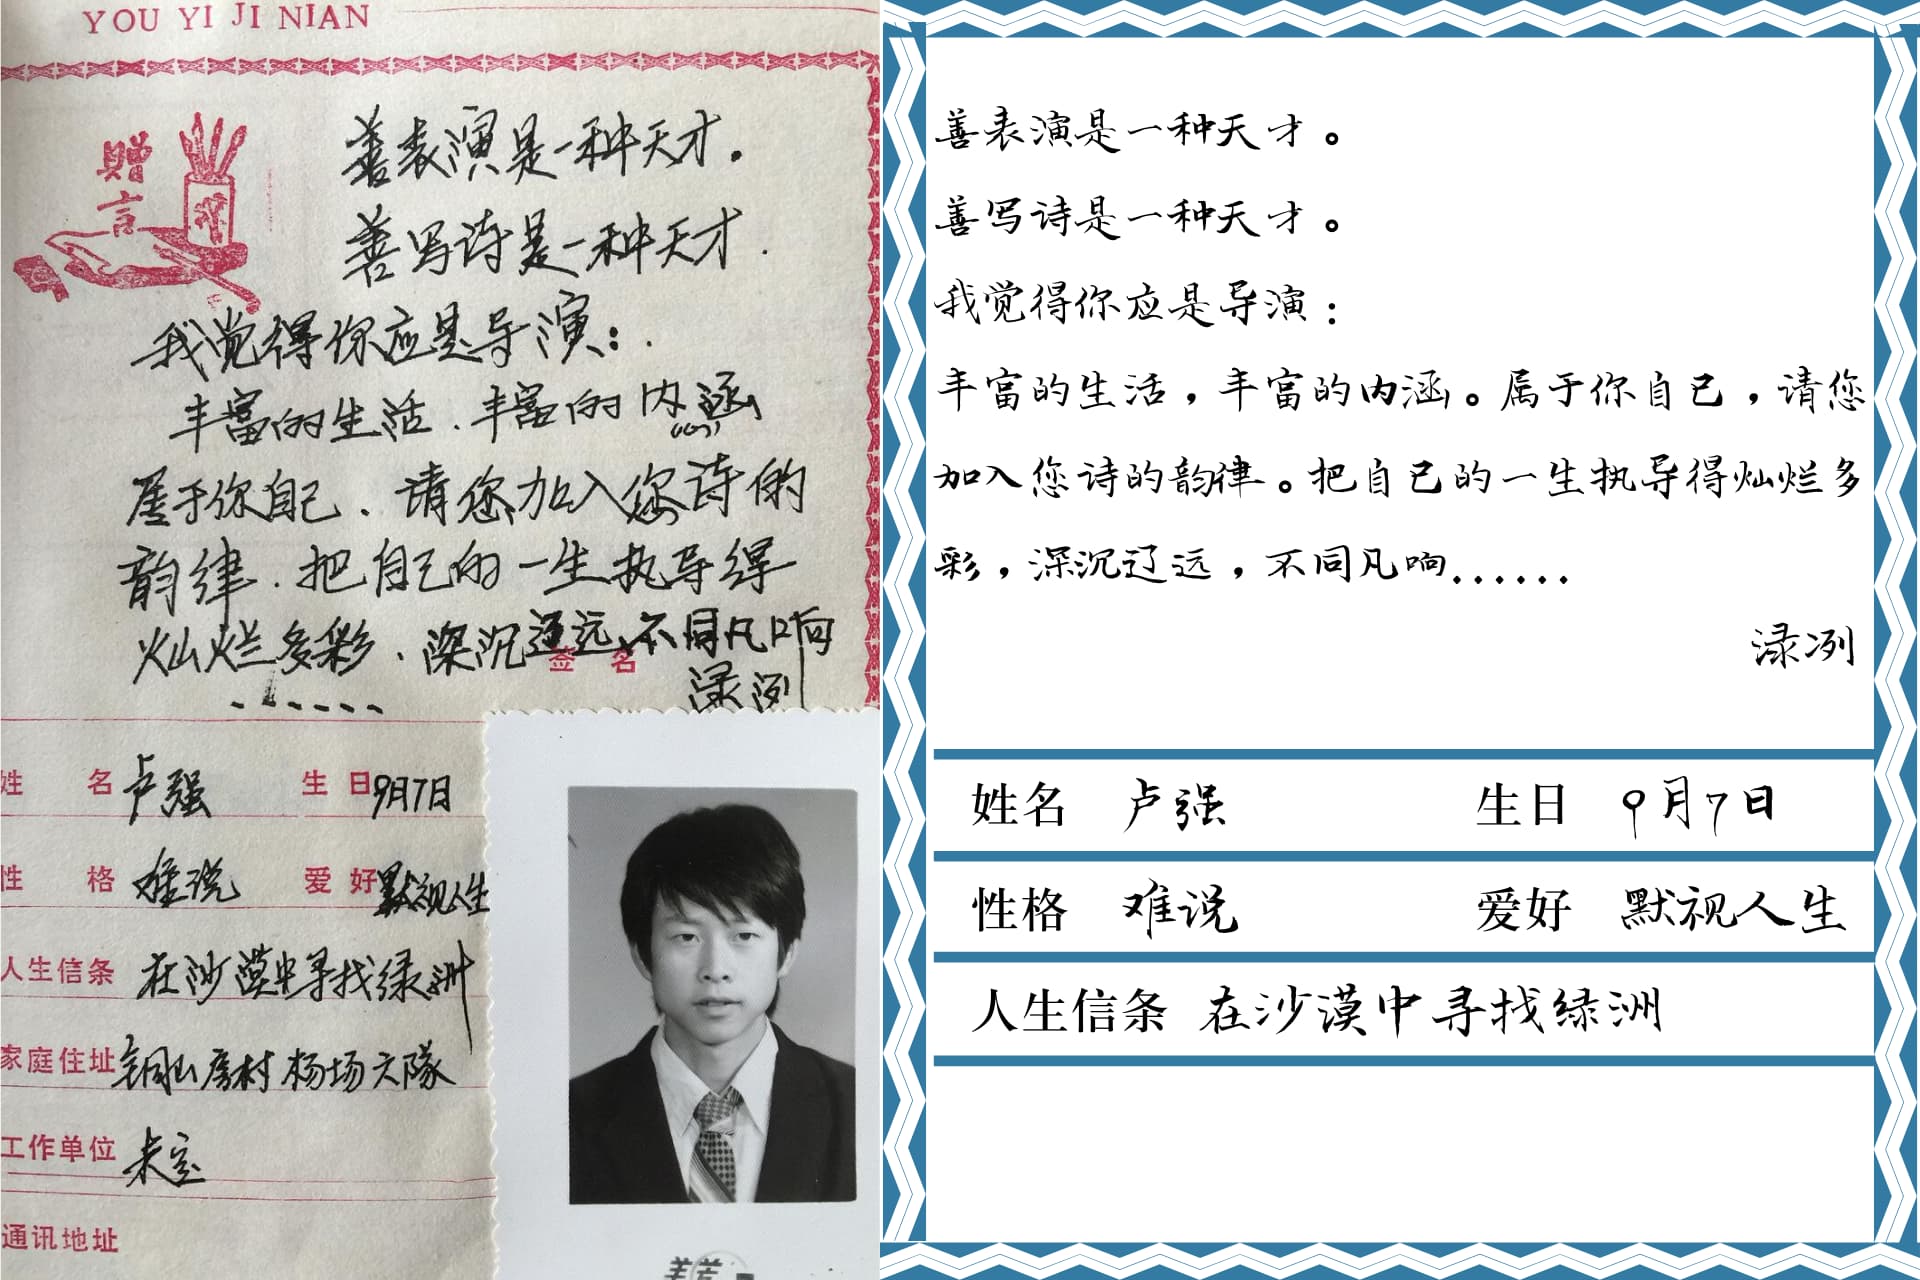 YOU YI JI NIAN
赠言
善表演是一种天才.
善写诗是一种天才.
我觉得你应是导演:
丰富的生活.丰富的内涵
属于你自己.请您加入您诗的
韵律.把自己的一生执导得
灿烂多彩.深沉辽远、不同凡响
......
签名
渌冽
姓名 卢强 生日 9月7日
性格 难说 爱好 默视人生
人生信条 在沙漠中寻找绿洲
家庭住址 铜山房村杨场六队
工作单位 未定
通讯地址
善表演是一种天才。
善写诗是一种天才。
我觉得你应是导演：
丰富的生活，丰富的内涵。属于你自己，请您
加入您诗的韵律。把自己的一生执导得灿烂多
彩，深沉辽远，不同凡响......
渌冽
姓名 卢强 生日 9月7日
性格 难说 爱好 默视人生
人生信条 在沙漠中寻找绿洲